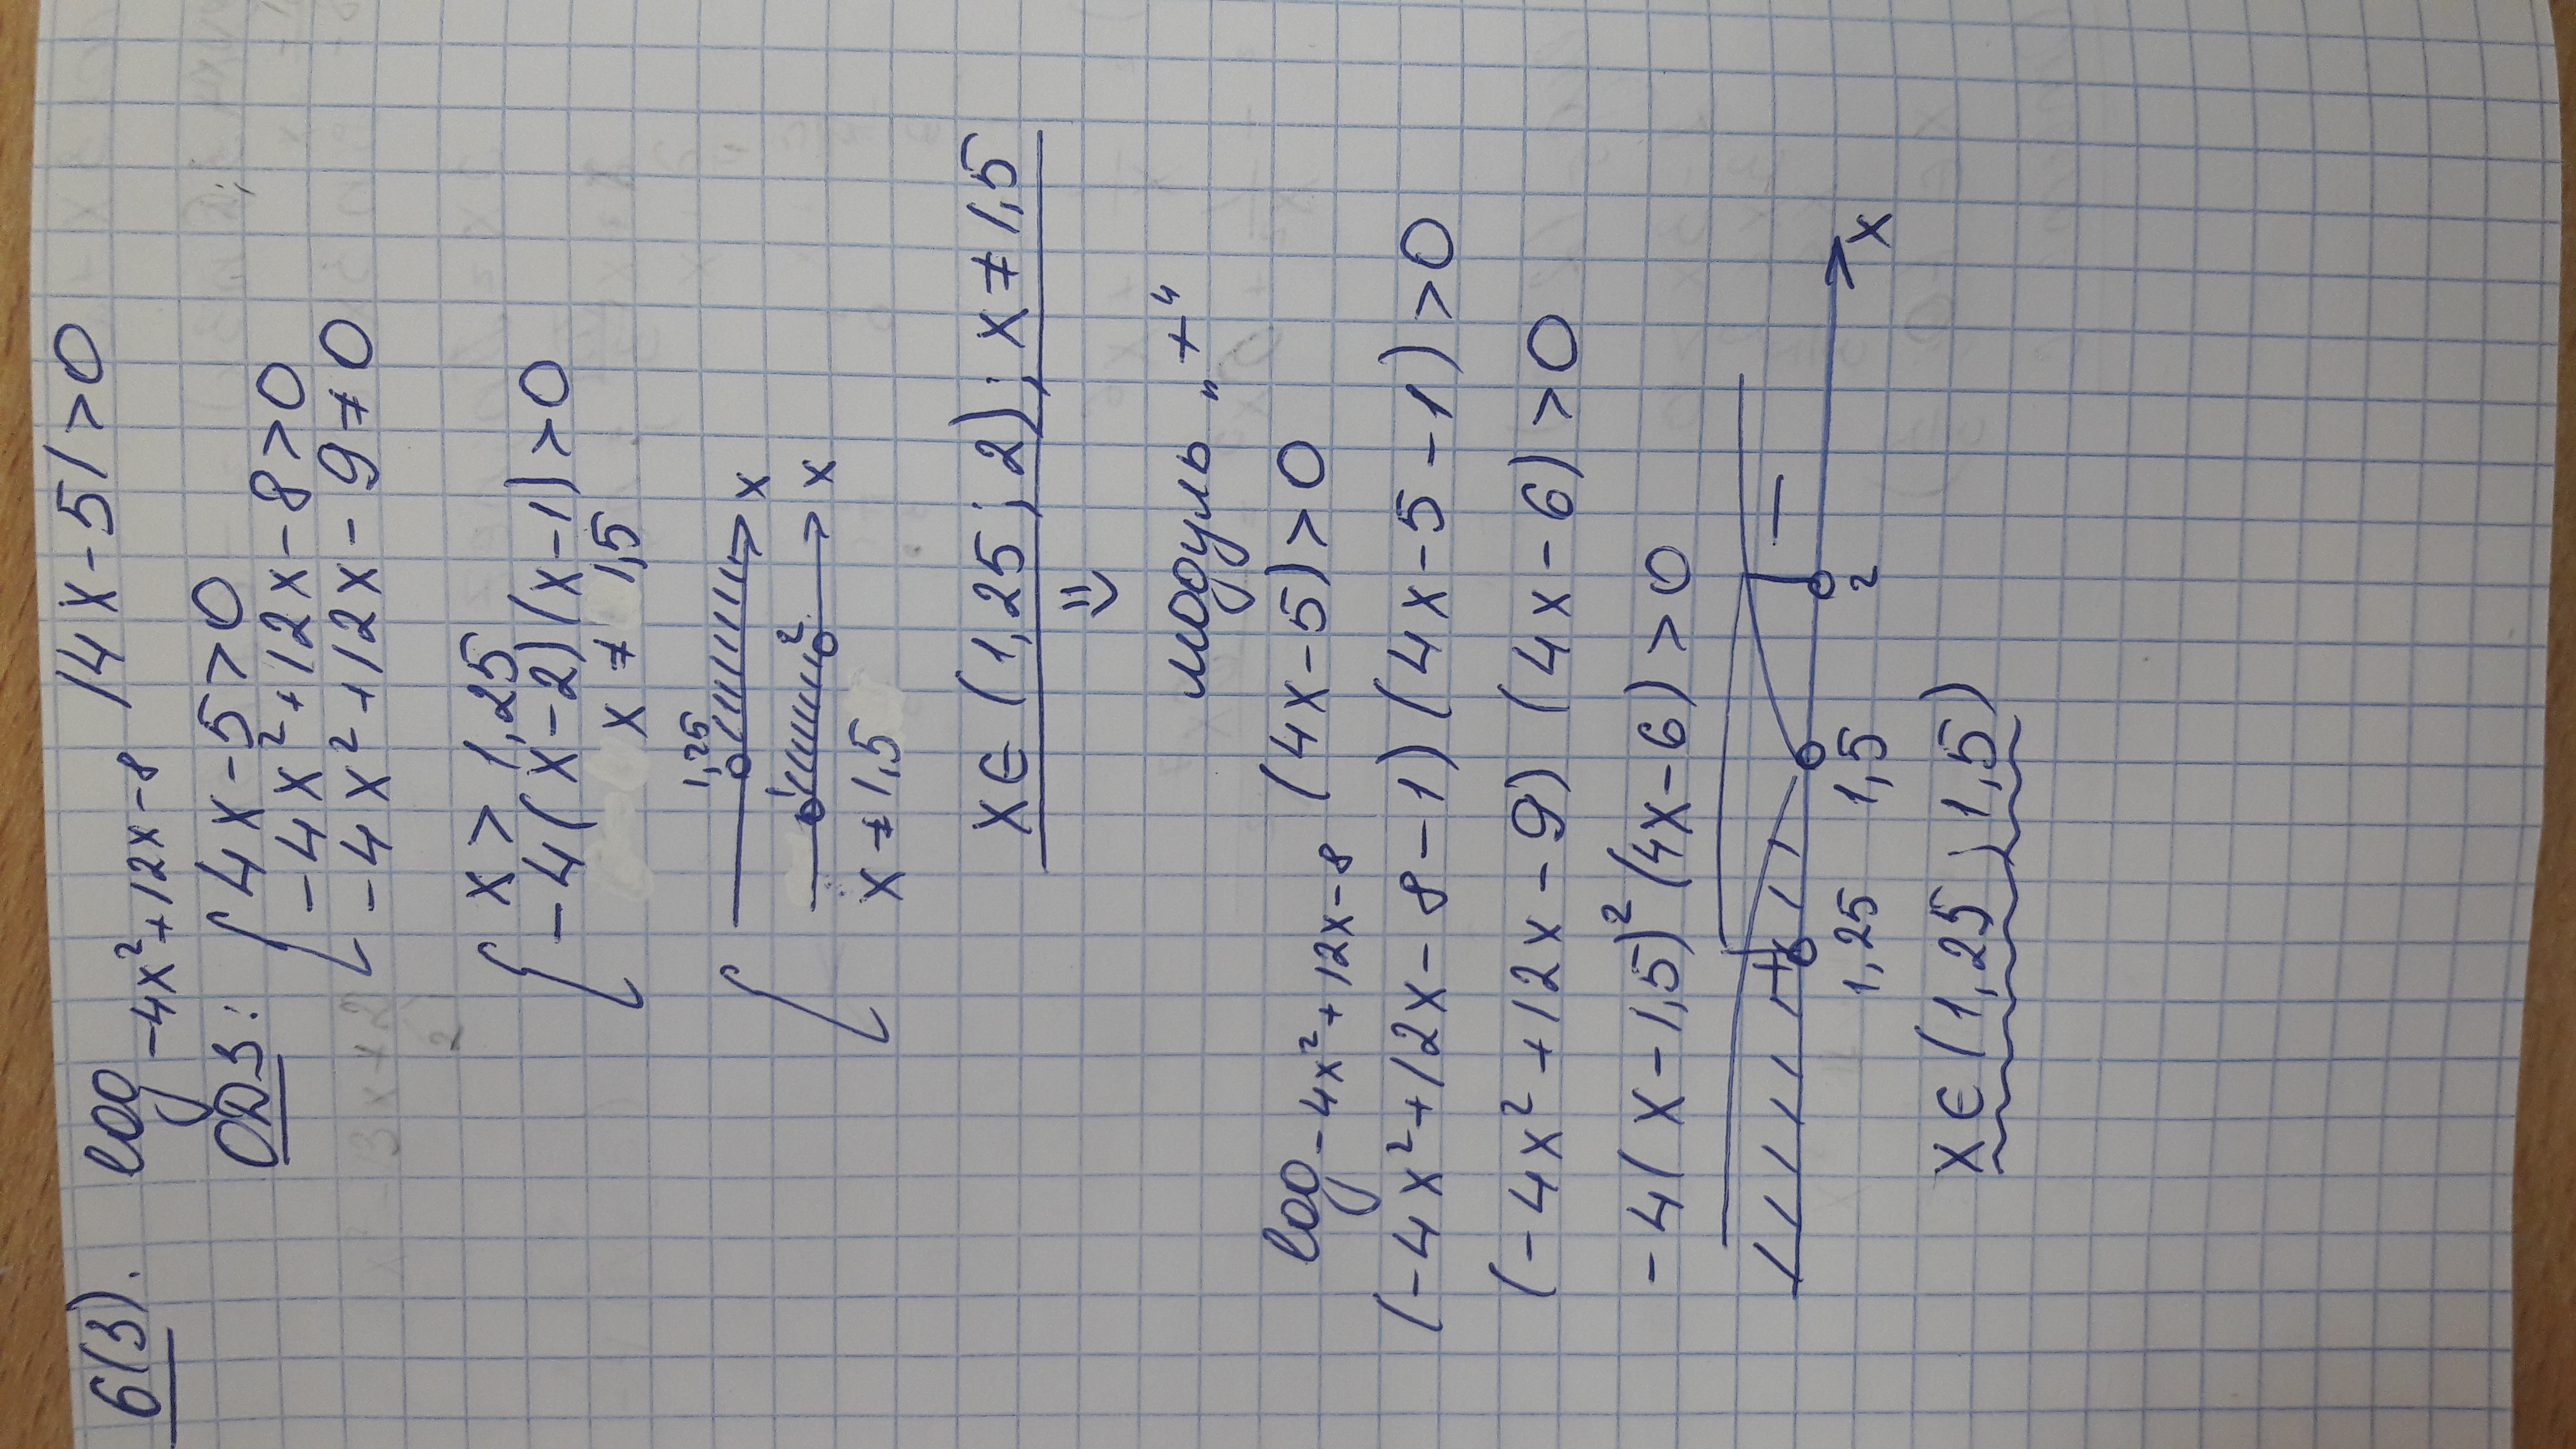 6(3). log -4x²+12x-8 |4x-5|>0
ОДЗ: { 4x-5>0
-4x²+12x-8>0
-4x²+12x-9≠0
{ x>1,25
-4(x-2)(x-1)>0
x≠1,5
1,25 x
1 2 x
x≠1,5
x∈(1,25;2); x≠1,5
модуль „+“
log -4x²+12x-8 (4x-5)>0
(-4x²+12x-8-1)(4x-5-1)>0
(-4x²+12x-9)(4x-6)>0
-4(x-1,5)²(4x-6)>0
+ −
1,25 1,5 2 x
x∈(1,25;1,5)